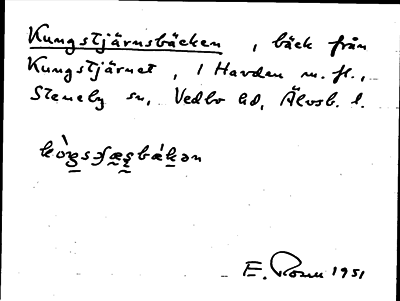 Kungstjärnsbäcken, bäck från
Kungstjärnet, i Havden m. fl.,
Steneby sn, Vedbo hd, Älvsb. l.
E. Rosen 1951